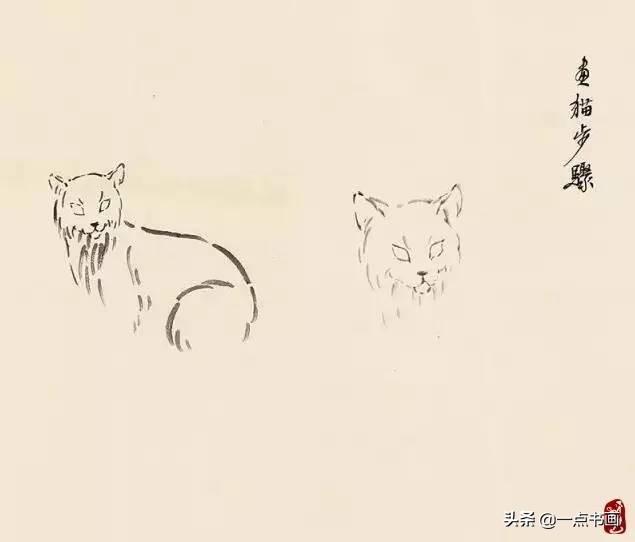 畫猫步驟
头条 @一点书画